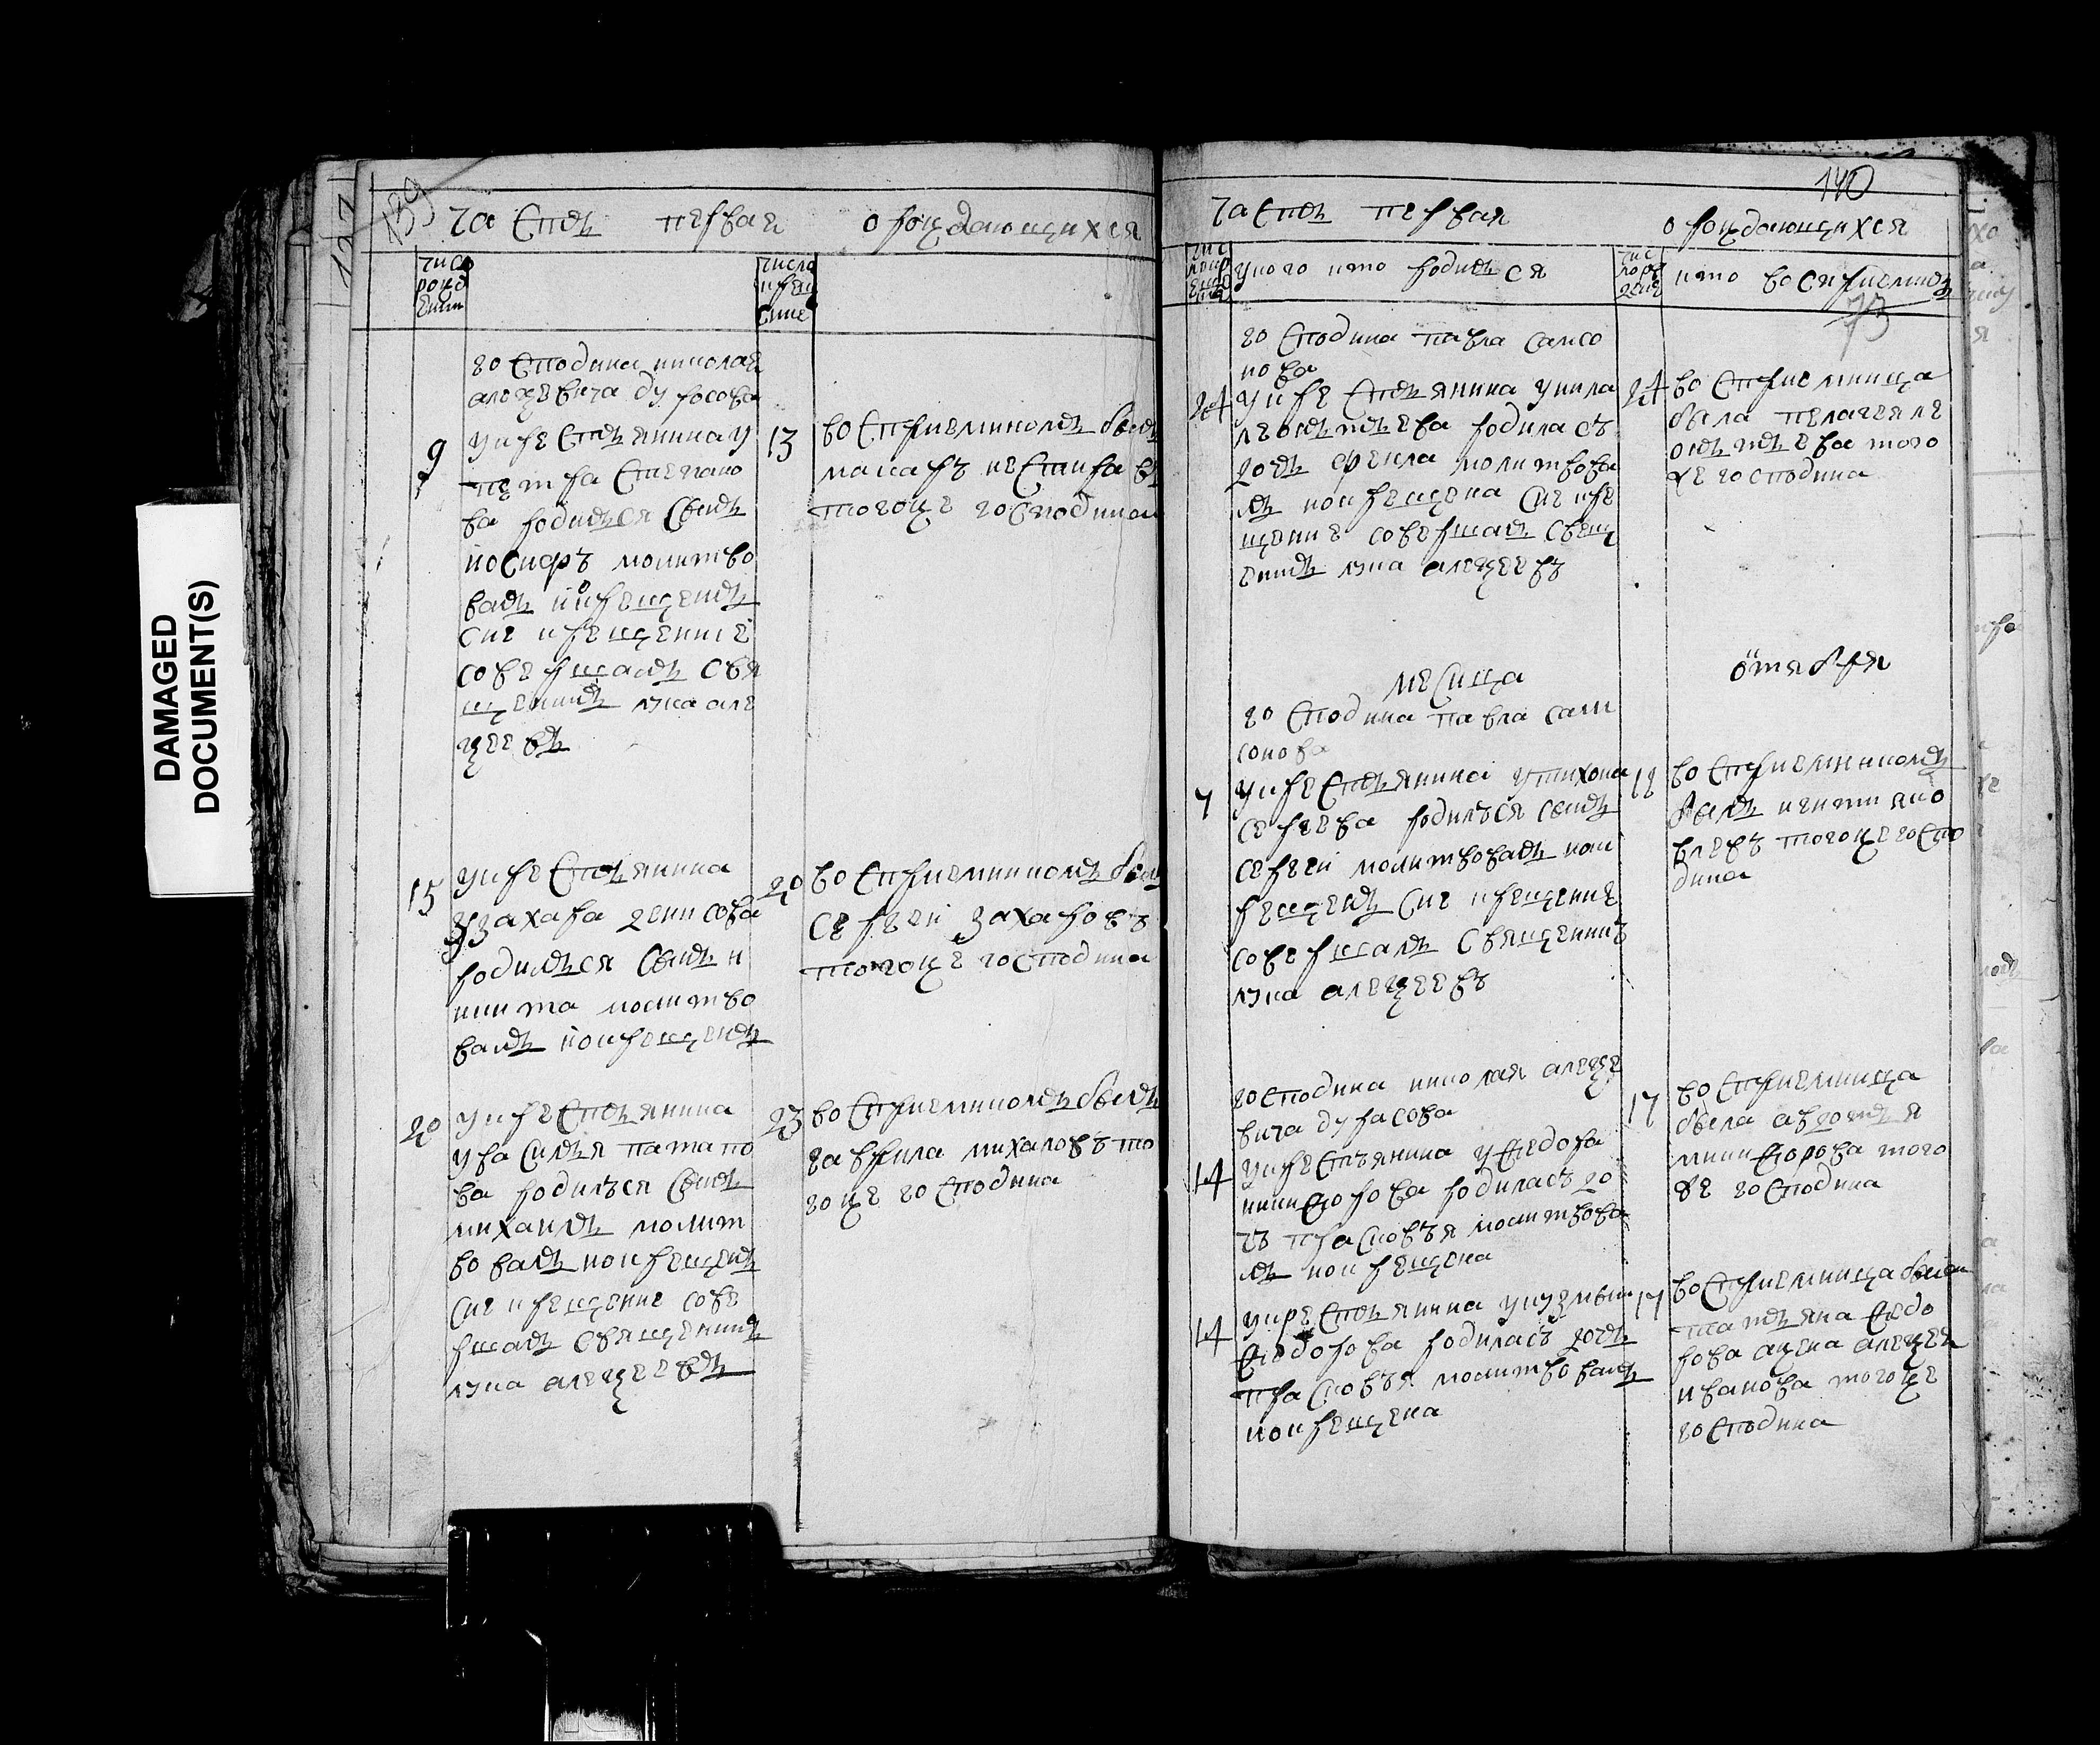 DAMAGED
DOCUMENT(S)
127
139
часть первая о рождающихся
число рожд ения
число крещ ение
господина николая
алеѯевича дурасова
9
у крестьянина у
петра степано
ва родился сынъ
иосифъ молитво
валъ и крещенъ
сие крещение
совершалъ свя
щенникъ лука але
ѯеевъ
13
восприемникомъ былъ
макаръ нестиравъ
тогоже господина
15
у крестьянина
у захара денисова
родился сынъ н
никита молитво
валъ и крещенъ
20
восприемникомъ былъ
сергеи захаровъ
тогоже господина
20
у крестьянина
у василья патапо
ва родился сынъ
михаилъ молит
вовалъ и крещенъ
сие крещение сове
ршалъ священникъ
лука алеѯеевъ
23
восприемникомъ былъ
гаврила михаловъ то
гоже господина
140
часть первая о рождающихся
у кого кто родился
кто восприемникъ
73
господина павла самсо
нова
24
у крестьянина у кила
леонтьева родилась
дочь фекла молитвова
лъ и крещена сие кре
щение совершалъ свещ
енникъ лука алеѯеевъ
24
восприемница
была пелагея ле
онтьева того
же господина
месяца октября
господина павла сам
сонова
7
у крестьянина у тихона
сергеева родился сынъ
сергеи молитвовалъ и к
рещенъ сие крещение
совершалъ священникъ
лука алеѯеевъ
12
восприемникомъ
былъ никита яко
влевъ тогоже госпо
дина
господина николая алеѯе
вича дурасова
14
у крестьянина у федора
никифорова родилась до
чь прасковья молитвова
лъ и крещена
17
восприемница
была авдотья
никифорова того
же господина
14
у крестьянина у кузмы
федорова родилась дочь
прасковья молитвовалъ
и крещена
17
восприемница была
татьяна федо
рова жена алеѯея
иванова тогоже
господина